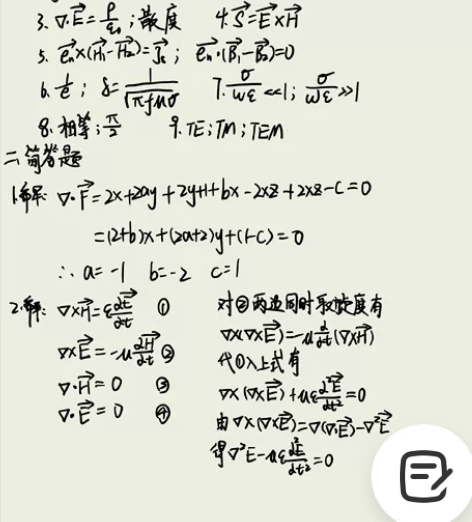 3. ∇·E⃗ = ρ/ε₀; 散度 4. S⃗ = E⃗×H⃗
5. e⃗n×(H⃗₁-H⃗₂)=J⃗s; e⃗n·(B⃗₁-B⃗₂)=0
6. 1/e; δ=1/√(πfμσ) 7. σ/ωε <<1; σ/ωε >>1
8. 相等; π/2 9. TE; TM; TEM
二、简答题
1.解: ∇·F⃗ = 2x+2ay+2y+1+bx-2xz+2xz-c=0
=(2+b)x+(2a+2)y+(1-c)=0
∴ a=-1 b=-2 c=1
2.解: ∇×H⃗=ε dE⃗/dt ①
∇×E⃗=-μ dH⃗/dt ②
∇·H⃗=0 ③
∇·E⃗=0 ④
对②两边同时取旋度有
∇×(∇×E⃗)=-μ d/dt(∇×H⃗)
代①入上式有
∇×(∇×E⃗)+με d²E⃗/dt²=0
由∇×(∇×E⃗)=∇(∇·E⃗)-∇²E⃗
得∇²E-με d²E⃗/dt²=0